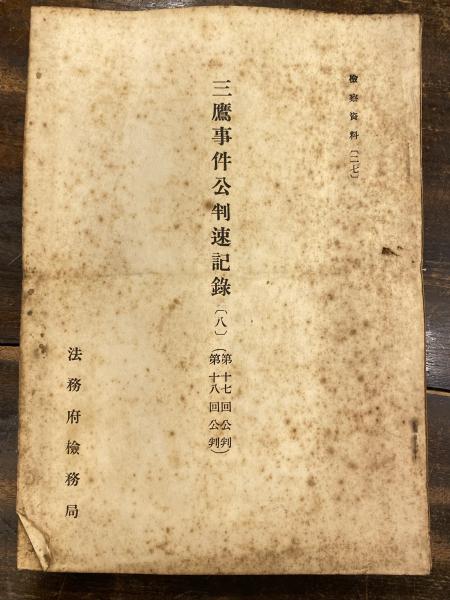 檢察資料〔二七〕
三鷹事件公判速記錄〔八〕
(第十七回公判
第十八回公判)
法務府檢務局